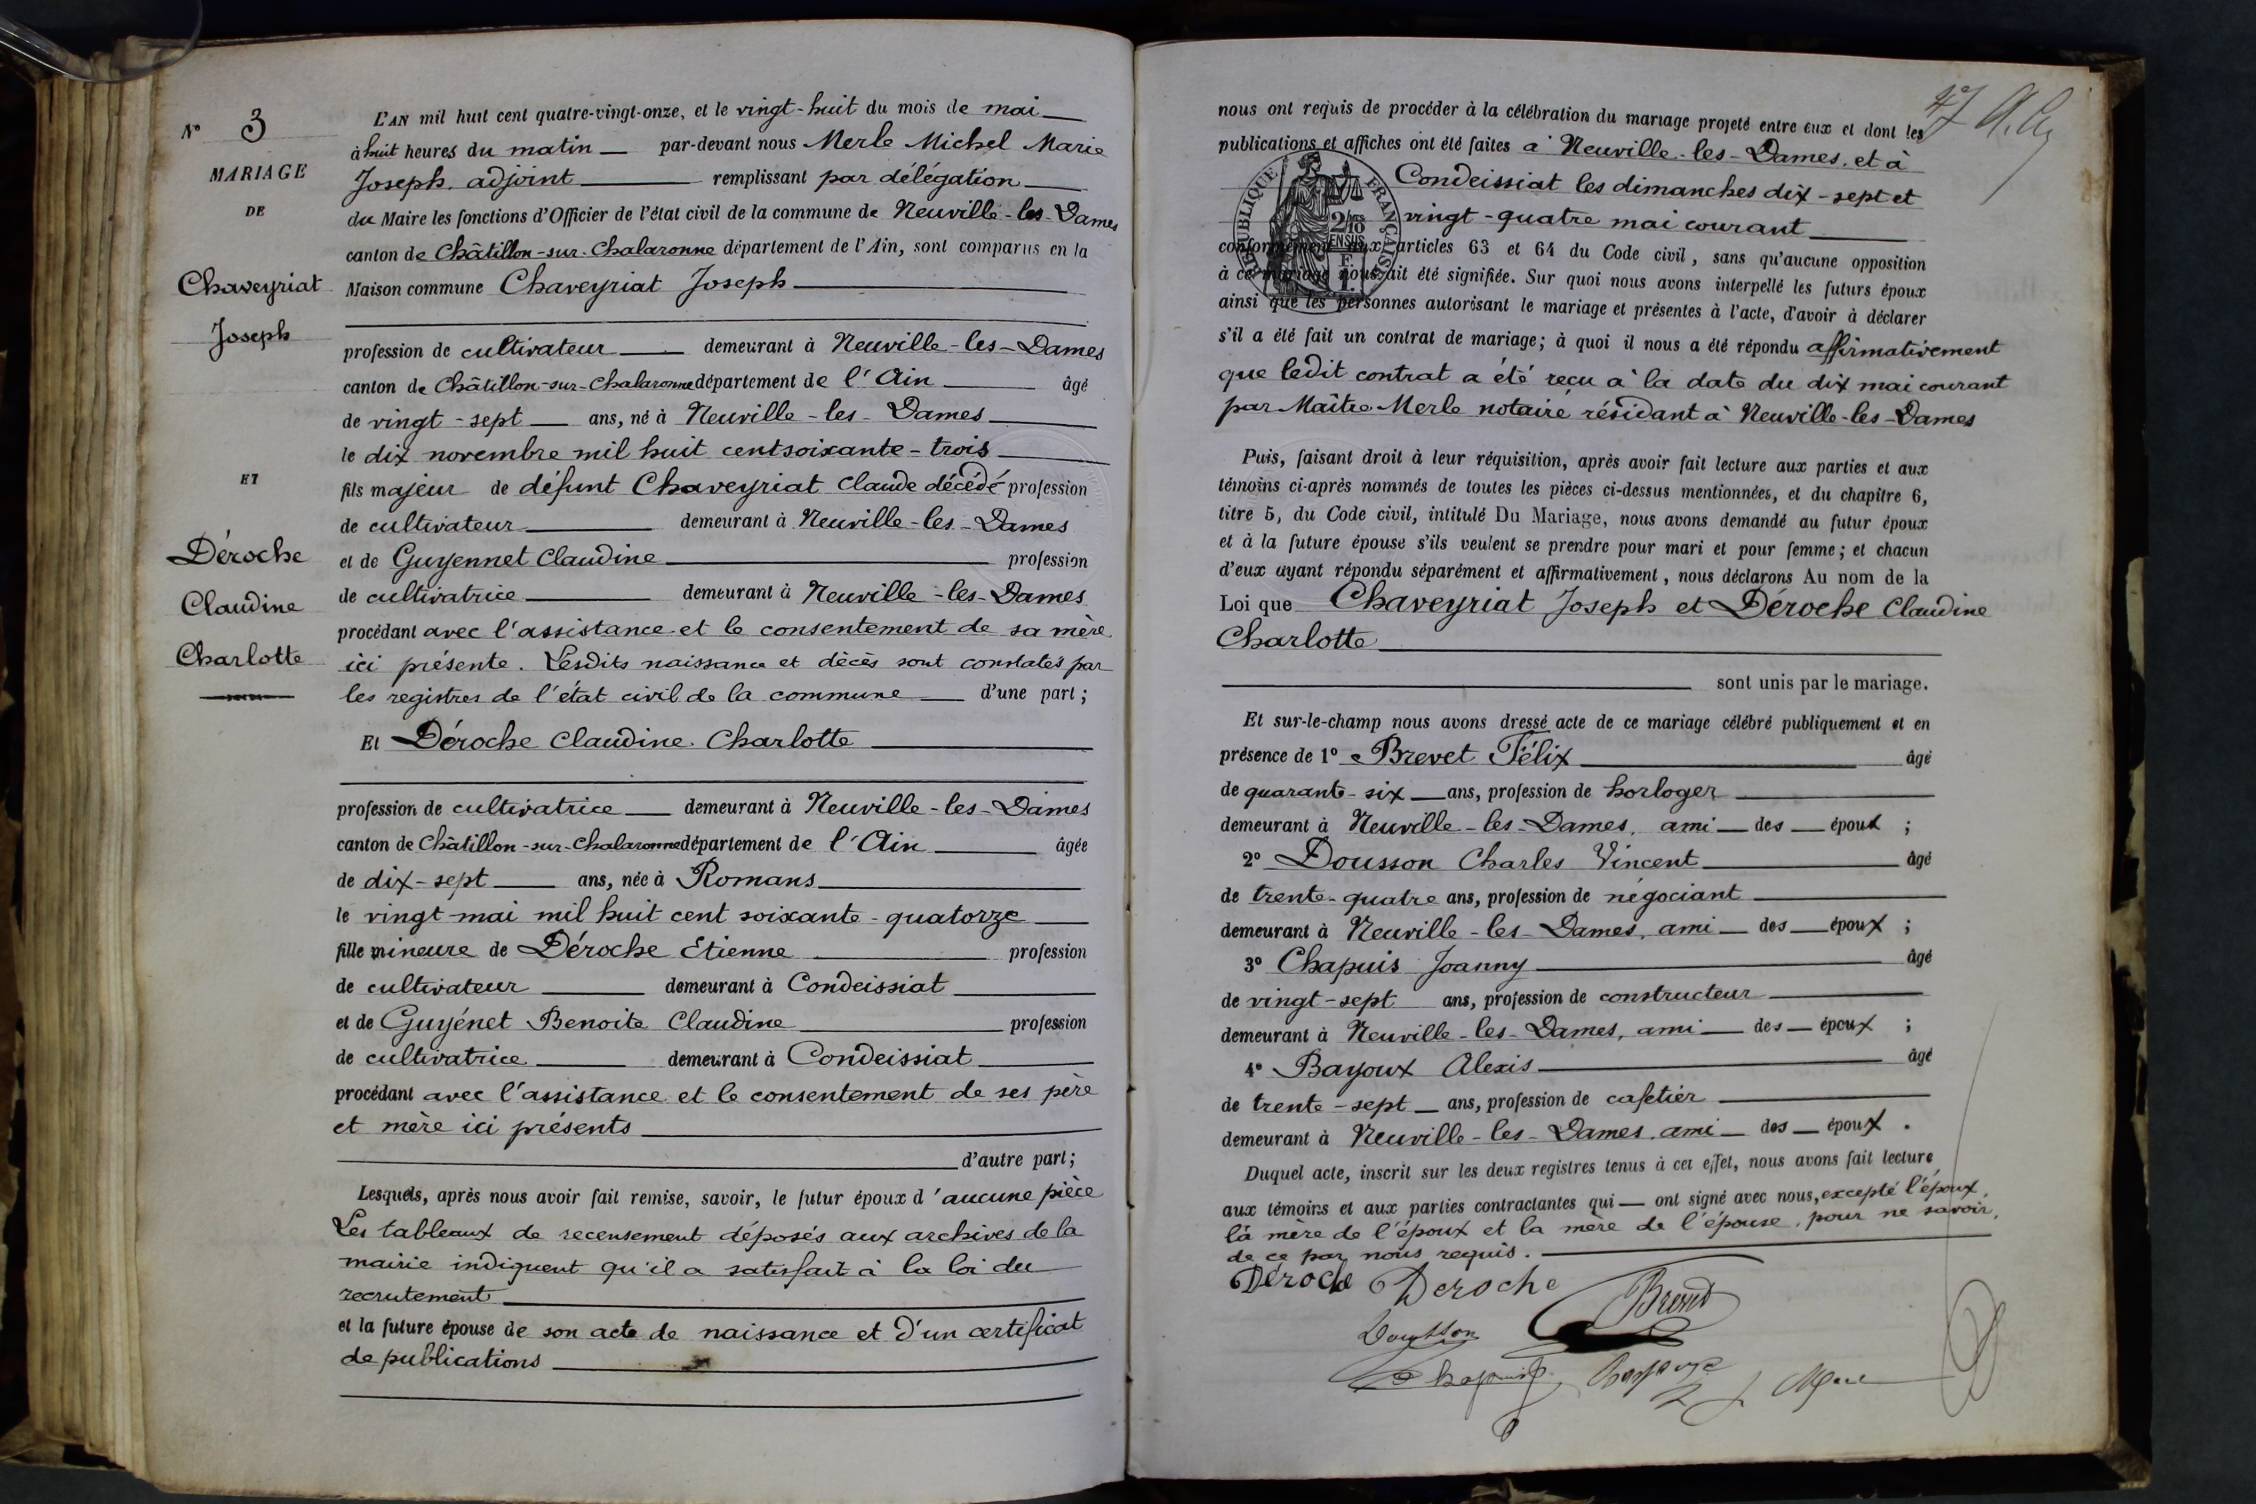 N° 3
MARIAGE
DE
Chaveyriat
Joseph
ET
Déroche
Claudine
Charlotte
L'AN mil huit cent quatre-vingt-onze, et le vingt-huit du mois de mai
à huit heures du matin par-devant nous Merle Michel Marie
Joseph, adjoint remplissant par délégation
du Maire les fonctions d'Officier de l'état civil de la commune de Neuville-les-Dames
canton de Châtillon-sur-Chalaronne département de l'Ain, sont comparus en la
Maison commune Chaveyriat Joseph
profession de cultivateur demeurant à Neuville-les-Dames
canton de Châtillon-sur-Chalaronne département de l'Ain âgé
de vingt-sept ans, né à Neuville-les-Dames
le dix novembre mil huit cent soixante-trois
fils majeur de défunt Chaveyriat Claude décédé profession
de cultivateur demeurant à Neuville-les-Dames
et de Guyennet Claudine profession
de cultivatrice demeurant à Neuville-les-Dames
procédant avec l'assistance et le consentement de sa mère
ici présente. Lesdits naissance et décès sont constatés par
les registres de l'état civil de la commune d'une part;
Et Déroche Claudine Charlotte
profession de cultivatrice demeurant à Neuville-les-Dames
canton de Châtillon-sur-Chalaronne département de l'Ain âgée
de dix-sept ans, née à Romans
le vingt mai mil huit cent soixante-quatorze
fille mineure de Déroche Etienne profession
de cultivateur demeurant à Condeissiat
et de Guyénet Benoite Claudine profession
de cultivatrice demeurant à Condeissiat
procédant avec l'assistance et le consentement de ses père
et mère ici présents
d'autre part;
Lesquels, après nous avoir fait remise, savoir, le futur époux d'aucune pièce
Les tableaux de recensement déposés aux archives de la
mairie indiquent qu'il a satisfait à la loi du
recrutement
et la future épouse de son acte de naissance et d'un certificat
de publications
47
nous ont requis de procéder à la célébration du mariage projeté entre eux et dont les
publications et affiches ont été faites à Neuville-les-Dames, et à
Condeissiat les dimanches dix-sept et
vingt-quatre mai courant
RÉPUBLIQUE FRANÇAISE
2/10 EN SUS
conformément aux articles 63 et 64 du Code civil, sans qu'aucune opposition
à ce mariage nous ait été signifiée. Sur quoi nous avons interpellé les futurs époux
ainsi que les personnes autorisant le mariage et présentes à l'acte, d'avoir à déclarer
s'il a été fait un contrat de mariage; à quoi il nous a été répondu affirmativement
que ledit contrat a été reçu à la date du dix mai courant
par Maître Merle notaire résidant à Neuville-les-Dames
Puis, faisant droit à leur réquisition, après avoir fait lecture aux parties et aux
témoins ci-après nommés de toutes les pièces ci-dessus mentionnées, et du chapitre 6,
titre 5, du Code civil, intitulé Du Mariage, nous avons demandé au futur époux
et à la future épouse s'ils veulent se prendre pour mari et pour femme; et chacun
d'eux ayant répondu séparément et affirmativement, nous déclarons Au nom de la
Loi que Chaveyriat Joseph et Déroche Claudine
Charlotte
sont unis par le mariage.
Et sur-le-champ nous avons dressé acte de ce mariage célébré publiquement et en
présence de 1° Brevet Félix âgé
de quarante-six ans, profession de horloger
demeurant à Neuville-les-Dames, ami des époux ;
2° Dousson Charles Vincent âgé
de trente-quatre ans, profession de négociant
demeurant à Neuville-les-Dames, ami des époux ;
3° Chapuis Joanny âgé
de vingt-sept ans, profession de constructeur
demeurant à Neuville-les-Dames, ami des époux ;
4° Bayoux Alexis âgé
de trente-sept ans, profession de cafetier
demeurant à Neuville-les-Dames, ami des époux .
Duquel acte, inscrit sur les deux registres tenus à cet effet, nous avons fait lecture
aux témoins et aux parties contractantes qui ont signé avec nous, excepté l'époux,
la mère de l'époux et la mère de l'épouse, pour ne savoir,
de ce par nous requis.
Déroche Deroche Brevet
Dousson
Chapuis